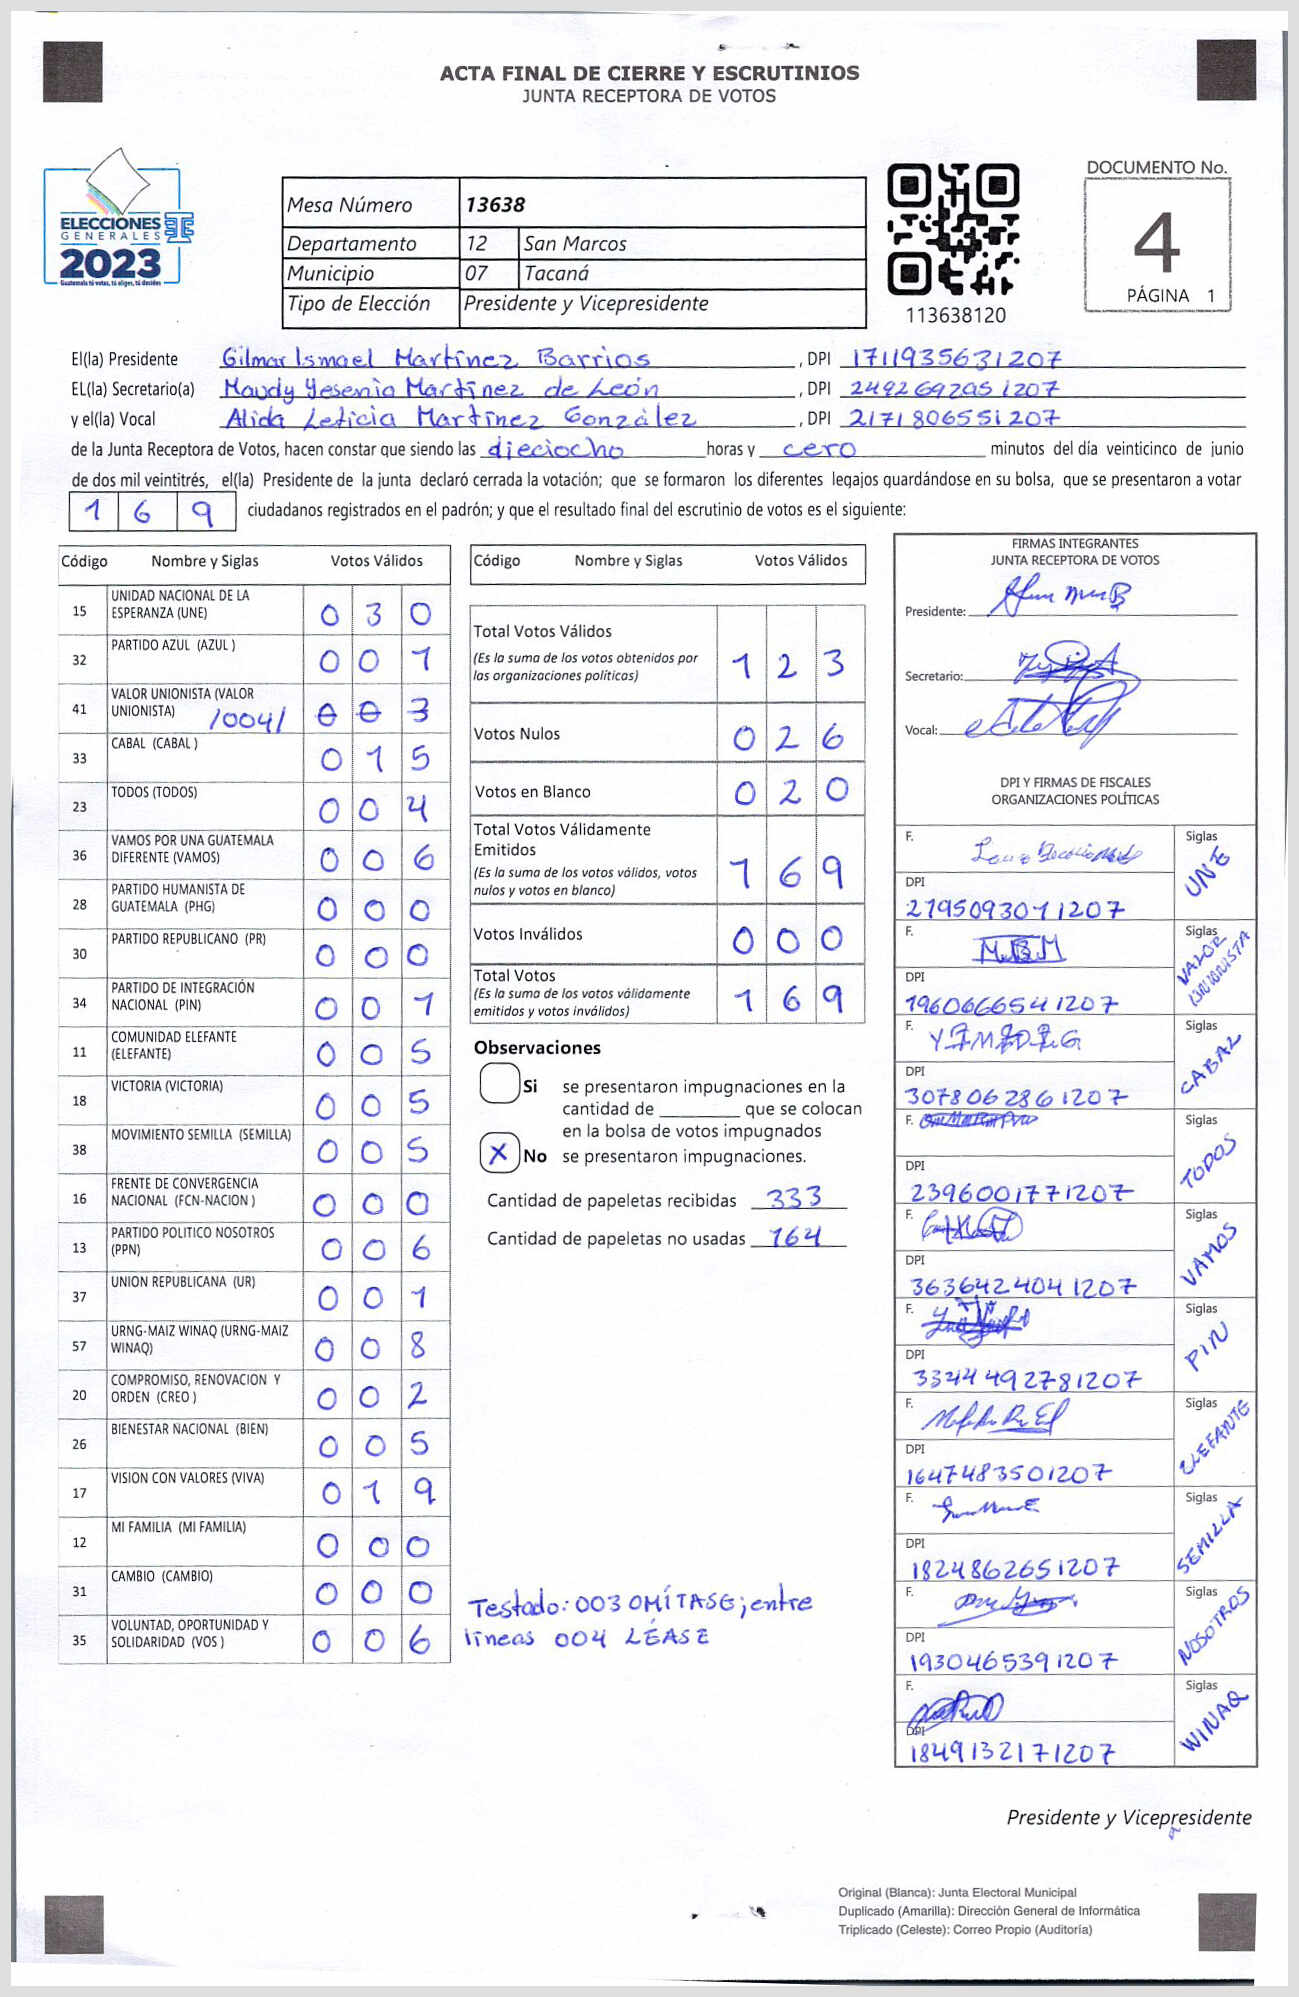 ACTA FINAL DE CIERRE Y ESCRUTINIOS
JUNTA RECEPTORA DE VOTOS
ELECCIONES
GENERALES
2023
Guatemala tú votas, tú eliges, tú decides
Mesa Número 13638
Departamento 12 San Marcos
Municipio 07 Tacaná
Tipo de Elección Presidente y Vicepresidente
113638120
DOCUMENTO No.
4
PÁGINA 1
El(la) Presidente Gilmar Ismael Martínez Barrios, DPI 1711935631207
EL(la) Secretario(a) Maudy Yesenia Martínez de León, DPI 2492692051207
y el(la) Vocal Alida Leticia Martínez González, DPI 2171806551207
de la Junta Receptora de Votos, hacen constar que siendo las dieciocho horas y cero minutos del día veinticinco de junio
de dos mil veintitrés, el(la) Presidente de la junta declaró cerrada la votación; que se formaron los diferentes legajos guardándose en su bolsa, que se presentaron a votar
169 ciudadanos registrados en el padrón; y que el resultado final del escrutinio de votos es el siguiente:
Código Nombre y Siglas Votos Válidos
15 UNIDAD NACIONAL DE LA ESPERANZA (UNE) 0 3 0
32 PARTIDO AZUL (AZUL ) 0 0 1
41 VALOR UNIONISTA (VALOR UNIONISTA) /004/ 0 0 3
33 CABAL (CABAL ) 0 1 5
23 TODOS (TODOS) 0 0 4
36 VAMOS POR UNA GUATEMALA DIFERENTE (VAMOS) 0 0 6
28 PARTIDO HUMANISTA DE GUATEMALA (PHG) 0 0 0
30 PARTIDO REPUBLICANO (PR) 0 0 0
34 PARTIDO DE INTEGRACIÓN NACIONAL (PIN) 0 0 1
11 COMUNIDAD ELEFANTE (ELEFANTE) 0 0 5
18 VICTORIA (VICTORIA) 0 0 5
38 MOVIMIENTO SEMILLA (SEMILLA) 0 0 5
16 FRENTE DE CONVERGENCIA NACIONAL (FCN-NACION ) 0 0 0
13 PARTIDO POLITICO NOSOTROS (PPN) 0 0 6
37 UNION REPUBLICANA (UR) 0 0 1
57 URNG-MAIZ WINAQ (URNG-MAIZ WINAQ) 0 0 8
20 COMPROMISO, RENOVACION Y ORDEN (CREO ) 0 0 2
26 BIENESTAR NACIONAL (BIEN) 0 0 5
17 VISION CON VALORES (VIVA) 0 1 9
12 MI FAMILIA (MI FAMILIA) 0 0 0
31 CAMBIO (CAMBIO) 0 0 0
35 VOLUNTAD, OPORTUNIDAD Y SOLIDARIDAD (VOS ) 0 0 6
Código Nombre y Siglas Votos Válidos
Total Votos Válidos 1 2 3
(Es la suma de los votos obtenidos por
las organizaciones políticas)
Votos Nulos 0 2 6
Votos en Blanco 0 2 0
Total Votos Válidamente
Emitidos 1 6 9
(Es la suma de los votos válidos, votos
nulos y votos en blanco)
Votos Inválidos 0 0 0
Total Votos 1 6 9
(Es la suma de los votos válidamente
emitidos y votos inválidos)
Observaciones
Si se presentaron impugnaciones en la
cantidad de ________ que se colocan
en la bolsa de votos impugnados
X No se presentaron impugnaciones.
Cantidad de papeletas recibidas 333
Cantidad de papeletas no usadas 164
Testado: 003 OMÍTASE; entre
líneas 004 LÉASE
FIRMAS INTEGRANTES
JUNTA RECEPTORA DE VOTOS
Presidente:
Secretario:
Vocal:
DPI Y FIRMAS DE FISCALES
ORGANIZACIONES POLÍTICAS
F. Siglas UNE
DPI 2795093011207
F. Siglas VALOR UNIONISTA
DPI 1960666541207
F. Siglas CABAL
DPI 3078062861207
F. Siglas TODOS
DPI 2396001771207
F. Siglas VAMOS
DPI 3636424041207
F. Siglas PIN
DPI 3344492781207
F. Siglas ELEFANTE
DPI 1647483501207
F. Siglas SEMILLA
DPI 1824862651207
F. Siglas NOSOTROS
DPI 1930465391207
F. Siglas WINAQ
DPI 1849132171207
Presidente y Vicepresidente
Original (Blanca): Junta Electoral Municipal
Duplicado (Amarilla): Dirección General de Informática
Triplicado (Celeste): Correo Propio (Auditoría)